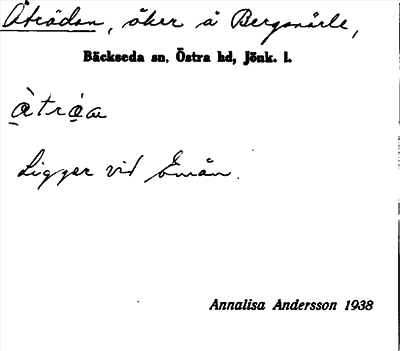 Åträdan, åker å Bergsnärle,
Bäckseda sn, Östra hd, Jönk. l.
Ligger vid Emån.
Annalisa Andersson 1938